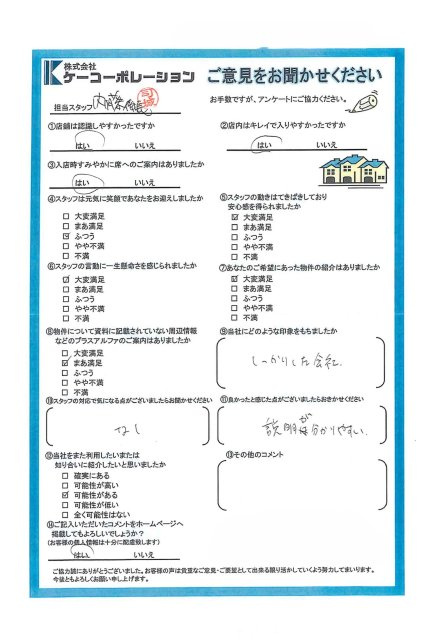 株式会社
ケーコーポレーション
ご意見をお聞かせください
担当スタッフ 内藤
お手数ですが、アンケートにご協力ください。
①店舗は認識しやすかったですか
はい いいえ
②店内はキレイで入りやすかったですか
はい いいえ
③入店時すみやかに席へのご案内はありましたか
はい いいえ
④スタッフは元気に笑顔であなたをお迎えしましたか
□ 大変満足
□ まあ満足
☑ ふつう
□ やや不満
□ 不満
⑤スタッフの動きはてきぱきしており
安心感を得られましたか
☑ 大変満足
□ まあ満足
□ ふつう
□ やや不満
□ 不満
⑥スタッフの言動に一生懸命さを感じられましたか
☑ 大変満足
□ まあ満足
□ ふつう
□ やや不満
□ 不満
⑦あなたのご希望にあった物件の紹介はありましたか
☑ 大変満足
□ まあ満足
□ ふつう
□ やや不満
□ 不満
⑧物件について資料に記載されていない周辺情報
などのプラスアルファのご案内はありましたか
□ 大変満足
☑ まあ満足
□ ふつう
□ やや不満
□ 不満
⑨当社にどのような印象をもちましたか
しっかりした会社。
⑩スタッフの対応で気になる点がございましたらお聞かせください
なし
⑪良かったと感じた点がございましたらおきかせください
説明が分かりやすい。
⑫当社をまた利用したいまたは
知り合いに紹介したいと思いましたか
□ 確実にある
□ 可能性が高い
☑ 可能性がある
□ 可能性が低い
□ 全く可能性はない
⑬その他のコメント
⑭ご記入いただいたコメントをホームページへ
掲載してもよろしいでしょうか？
(お客様の個人情報は十分に配慮致します)
はい いいえ
ご協力誠にありがとうございました。お客様の声は貴重なご意見・ご要望として出来る限り活かしていくよう努力してまいります。
今後ともよろしくお願い申し上げます。